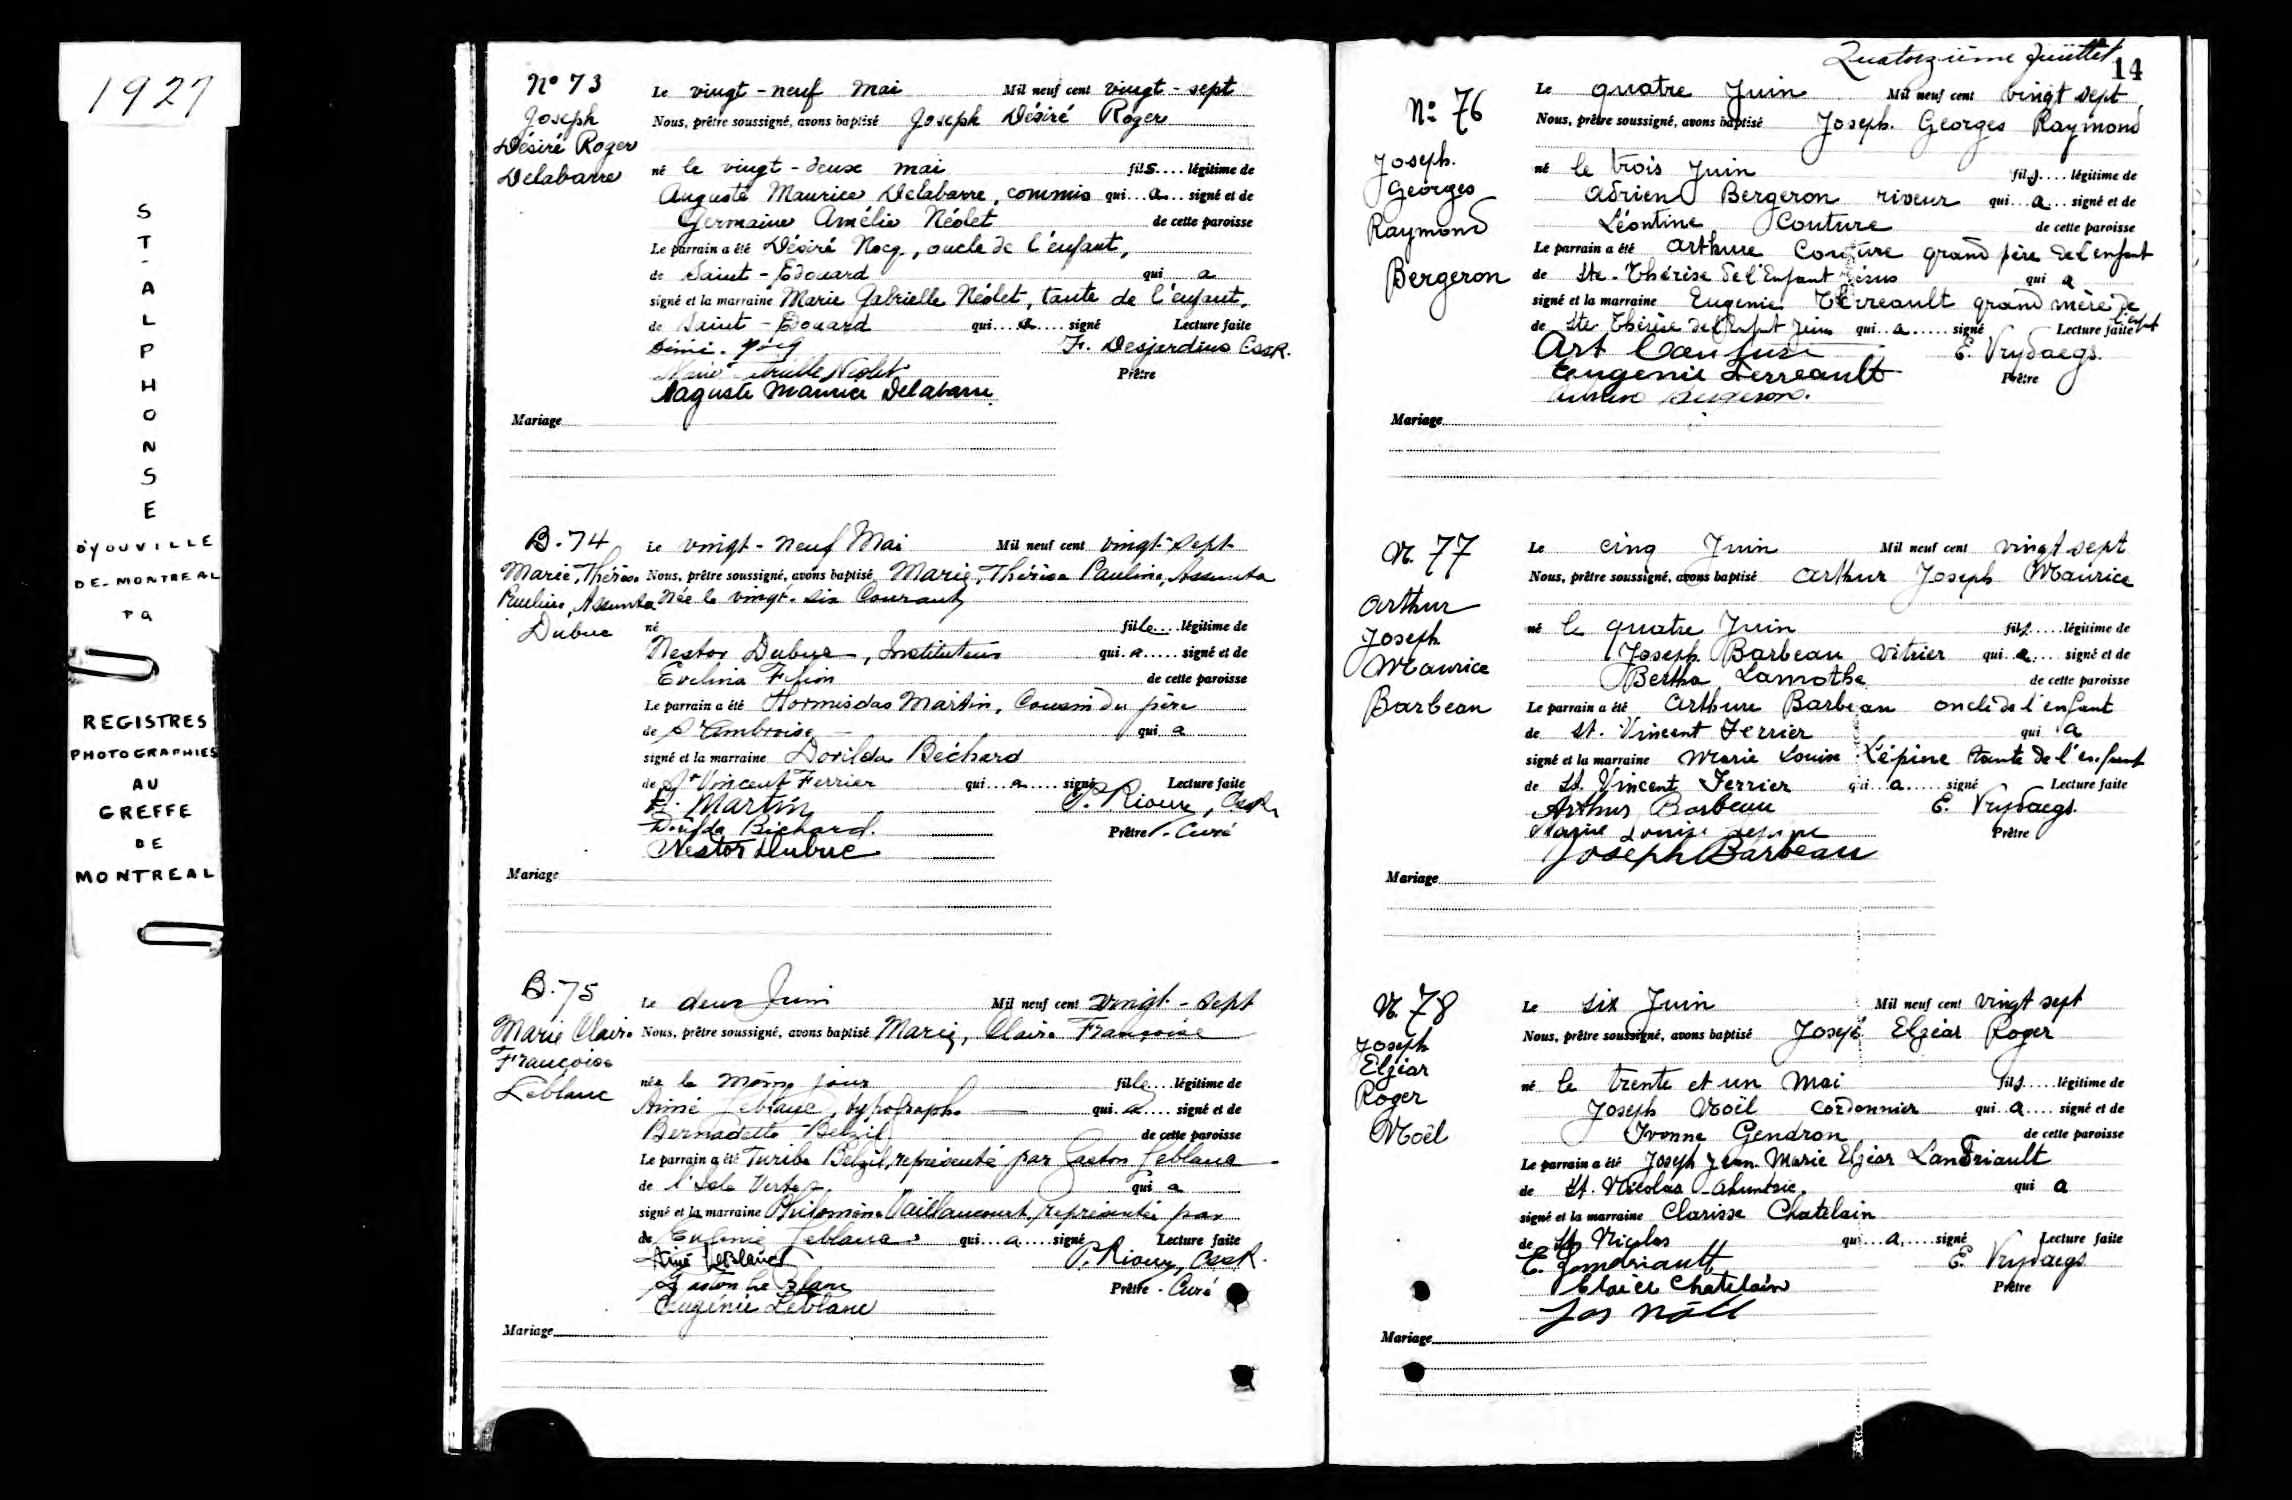 1927
ST-ALPHONSE
D'YOUVILLE
DE-MONTREAL
PQ
REGISTRES
PHOTOGRAPHIES
AU
GREFFE
DE
MONTREAL
No 73
Joseph
Désiré Roger
Delabarre
Le vingt-neuf mai Mil neuf cent vingt-sept
Nous, prêtre soussigné, avons baptisé Joseph Désiré Roger
né le vingt-deux mai fils légitime de
Auguste Maurice Delabarre, commis qui a signé et de
Germaine Amélie Néolet de cette paroisse
Le parrain a été Désiré Nocq, oncle de l'enfant,
de Saint-Edouard qui a
signé et la marraine Marie Gabrielle Néolet, tante de l'enfant,
de Saint-Edouard qui a signé Lecture faite
F. Desjardins CSSR.
Néolet Prêtre
Auguste Maurice Delabarre
Mariage
B.74
Marie, Thérèse
Pauline, Assunta
Dubuc
Le vingt-neuf Mai Mil neuf cent vingt-sept
Nous, prêtre soussigné, avons baptisé Marie, Thérèse Pauline, Assunta
Née le vingt-six Courant
né fille légitime de
Nestor Dubuc, Instituteur qui a signé et de
Evelina Filion de cette paroisse
Le parrain a été Hormisdas Martin, Cousin du père
de St Ambroise qui a
signé et la marraine Dorilda Béchard
de St Vincent Ferrier qui a signé Lecture faite
H. Martin P. Rioux, CssR
Dorilda Bechard. Prêtre - Curé
Nestor Dubuc
Mariage
B.75
Marie Claire
Françoise
Leblanc
Le deux Juin Mil neuf cent vingt-sept
Nous, prêtre soussigné, avons baptisé Marie, Claire Françoise
née le même jour fille légitime de
Aimé Leblanc, typographe qui a signé et de
Bernadette Belzil de cette paroisse
Le parrain a été Turibe Belzil, représenté par Gaston Leblanc
de l'Isle Verte qui a
signé et la marraine Philomène Vaillancourt, représentée par
de Eugénie Leblanc qui a signé Lecture faite
Aimé LeBlanc P. Rioux, CssR.
Gaston Le Blanc Prêtre - Curé
Eugénie Leblanc
Mariage
Quatorzième feuillet
14
No 76
Joseph.
Georges
Raymond
Bergeron
Le quatre Juin Mil neuf cent vingt sept
Nous, prêtre soussigné, avons baptisé Joseph. Georges Raymond
né le trois Juin fils légitime de
Adrien Bergeron riveur qui a signé et de
Léontine Couture de cette paroisse
Le parrain a été Arthure Couture grand père de l'enfant
de Ste-Thérèse de l'Enfant Jésus qui a
signé et la marraine Eugenie Therreault grand mère de l'enft
de Ste Thérèse de l'Enfant Jésus qui a signé Lecture faite
Art Couture E. Vrydaegs.
Eugenie Terreault Prêtre
Bergeron.
Mariage
N. 77
Arthur
Joseph
Maurice
Barbeau
Le cinq Juin Mil neuf cent vingt sept
Nous, prêtre soussigné, avons baptisé Arthur Joseph Maurice
né le quatre Juin fils légitime de
Joseph Barbeau Vitrier qui a signé et de
Bertha Lamothe de cette paroisse
Le parrain a été Arthure Barbeau oncle de l'enfant
de St. Vincent Ferrier qui a
signé et la marraine Marie Louise Lépine tante de l'enfant
de St. Vincent Ferrier qui a signé Lecture faite
Arthur Barbeau E. Vrydaegs.
Marie Louise Lepine Prêtre
Joseph Barbeau
Mariage
N. 78
Joseph
Elzéar
Roger
Noël
Le six Juin Mil neuf cent vingt sept
Nous, prêtre soussigné, avons baptisé Joseph Elzéar Roger
né le trente et un Mai fils légitime de
Joseph Noël cordonnier qui a signé et de
Yvonne Gendron de cette paroisse
Le parrain a été Joseph Jean Marie Elzéar Landriault
de St. Nicolas Ahuntsic. qui a
signé et la marraine Clarisse Chatelain
de St Nicolas qui a signé Lecture faite
E. Landriault E. Vrydaegs
Chatelain Prêtre
Jos Noël
Mariage